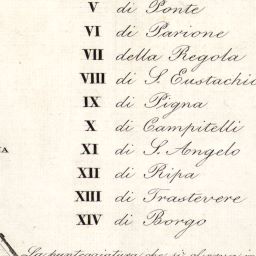 V di Ponte
VI di Parione
VII della Regola
VIII di S. Eustachio
IX di Pigna
X di Campitelli
XI di S. Angelo
XII di Ripa
XIII di Trastevere
XIV di Borgo
La punteggiatura che si